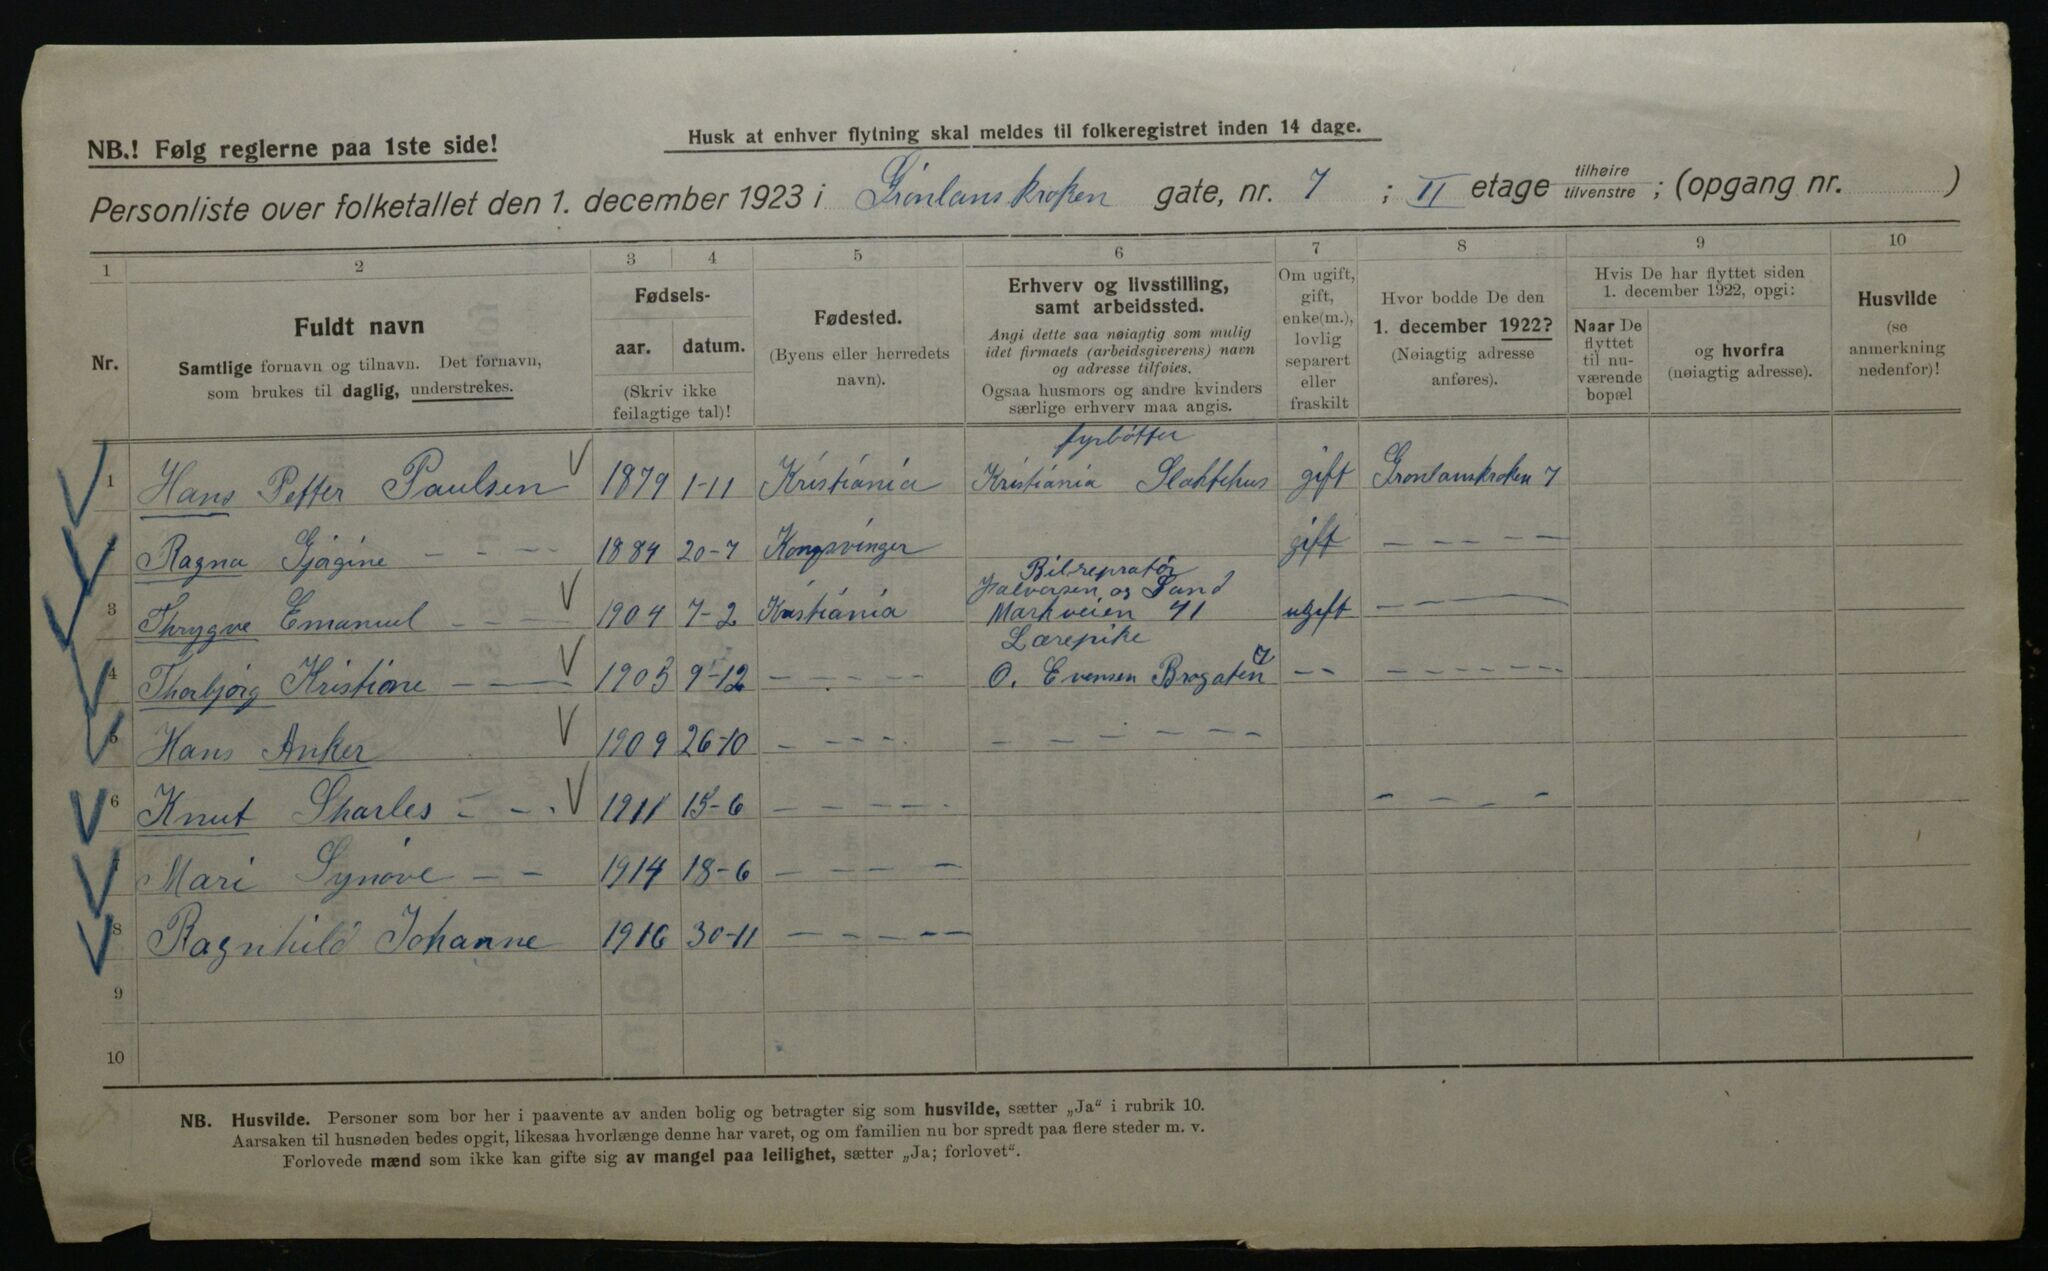 NB.! Følg reglerne paa 1ste side!
Husk at enhver flytning skal meldes til folkeregistret inden 14 dage.
Personliste over folketallet den 1. december 1923 i Grönlanskroken gate, nr. 7 ; II etage tilhøire tilvenstre ; (opgang nr. )
1 2 3 4 5 6 7 8 9 10
Nr.
Fuldt navn
Samtlige fornavn og tilnavn. Det fornavn,
som brukes til daglig, understrekes.
Fødsels-
aar. datum.
(Skriv ikke
feilagtige tal)!
Fødested.
(Byens eller herredets
navn).
Erhverv og livsstilling,
samt arbeidssted.
Angi dette saa nøiagtig som mulig
idet firmaets (arbeidsgiverens) navn
og adresse tilføies.
Ogsaa husmors og andre kvinders
særlige erhverv maa angis.
Om ugift,
gift,
enke(m.),
lovlig
separert
eller
fraskilt
Hvor bodde De den
1. december 1922?
(Nøiagtig adresse
anføres).
Hvis De har flyttet siden
1. december 1922, opgi:
Naar De
flyttet
til nu-
værende
bopæl
og hvorfra
(nøiagtig adresse).
Husvilde
(se
anmerkning
nedenfor)!
fyrbötter
1 Hans Petter Paulsen 1879 1-11 Kristiánia Kristiánia Slaktehus gift Gronlanskroken 7
Ragna Gjörgine - - - 1884 20-7 Kongsvinger gift - - - - -
Bilrepratör
Halvorsen og Sand
3 Thrygve Emanuel - - - 1904 7-2 Kristiánia Markveien 41 ugift - - -
Lærepike
4 Thorbjörg Kristiane - - - 1905 9-12 - - - - - O. Evensen Brogaten 7 - - - - - - - -
5 Hans Anker 1909 26-10 - - - - - - - - - - -
6 Knut Sharles - - - 1911 15-6 - - - - - - - - -
Mari Synöve - - 1914 18-6 - - - - -
8 Ragnhild Johanne 1916 30-11 - - - - -
9
10
NB. Husvilde. Personer som bor her i paavente av anden bolig og betragter sig som husvilde, sætter „Ja“ i rubrik 10.
Aarsaken til husnøden bedes opgit, likesaa hvorlænge denne har varet, og om familien nu bor spredt paa flere steder m. v.
Forlovede mænd som ikke kan gifte sig av mangel paa leilighet, sætter „Ja; forlovet“.